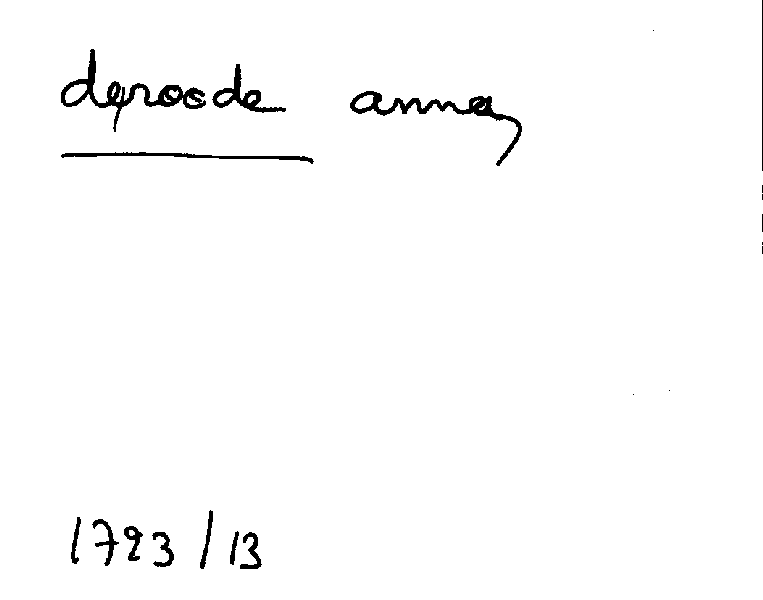 deroode anna
1793/13